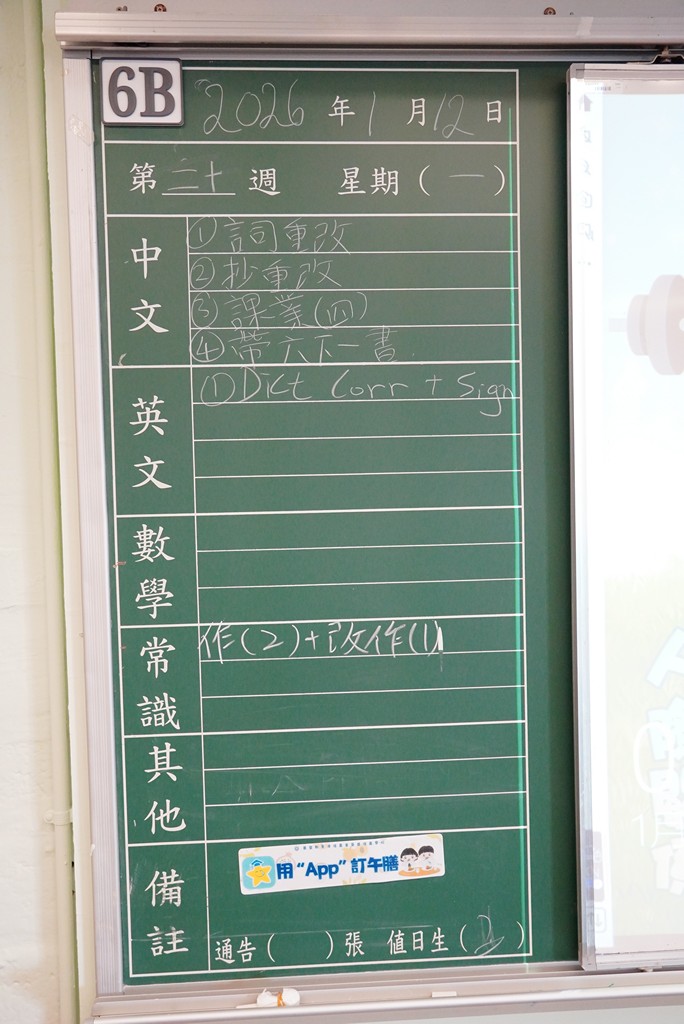 6B
2026 年 1 月 12 日
第 二十 週 星期 ( 一 )
中文
①詞重改
②抄重改
③課業(四)
④帶六下一書
英文
①Dict Corr + Sign
數學
常識
作(2)+改作(1)
其他
備註
用“App”訂午膳
通告 ( ) 張 值日生 ( )